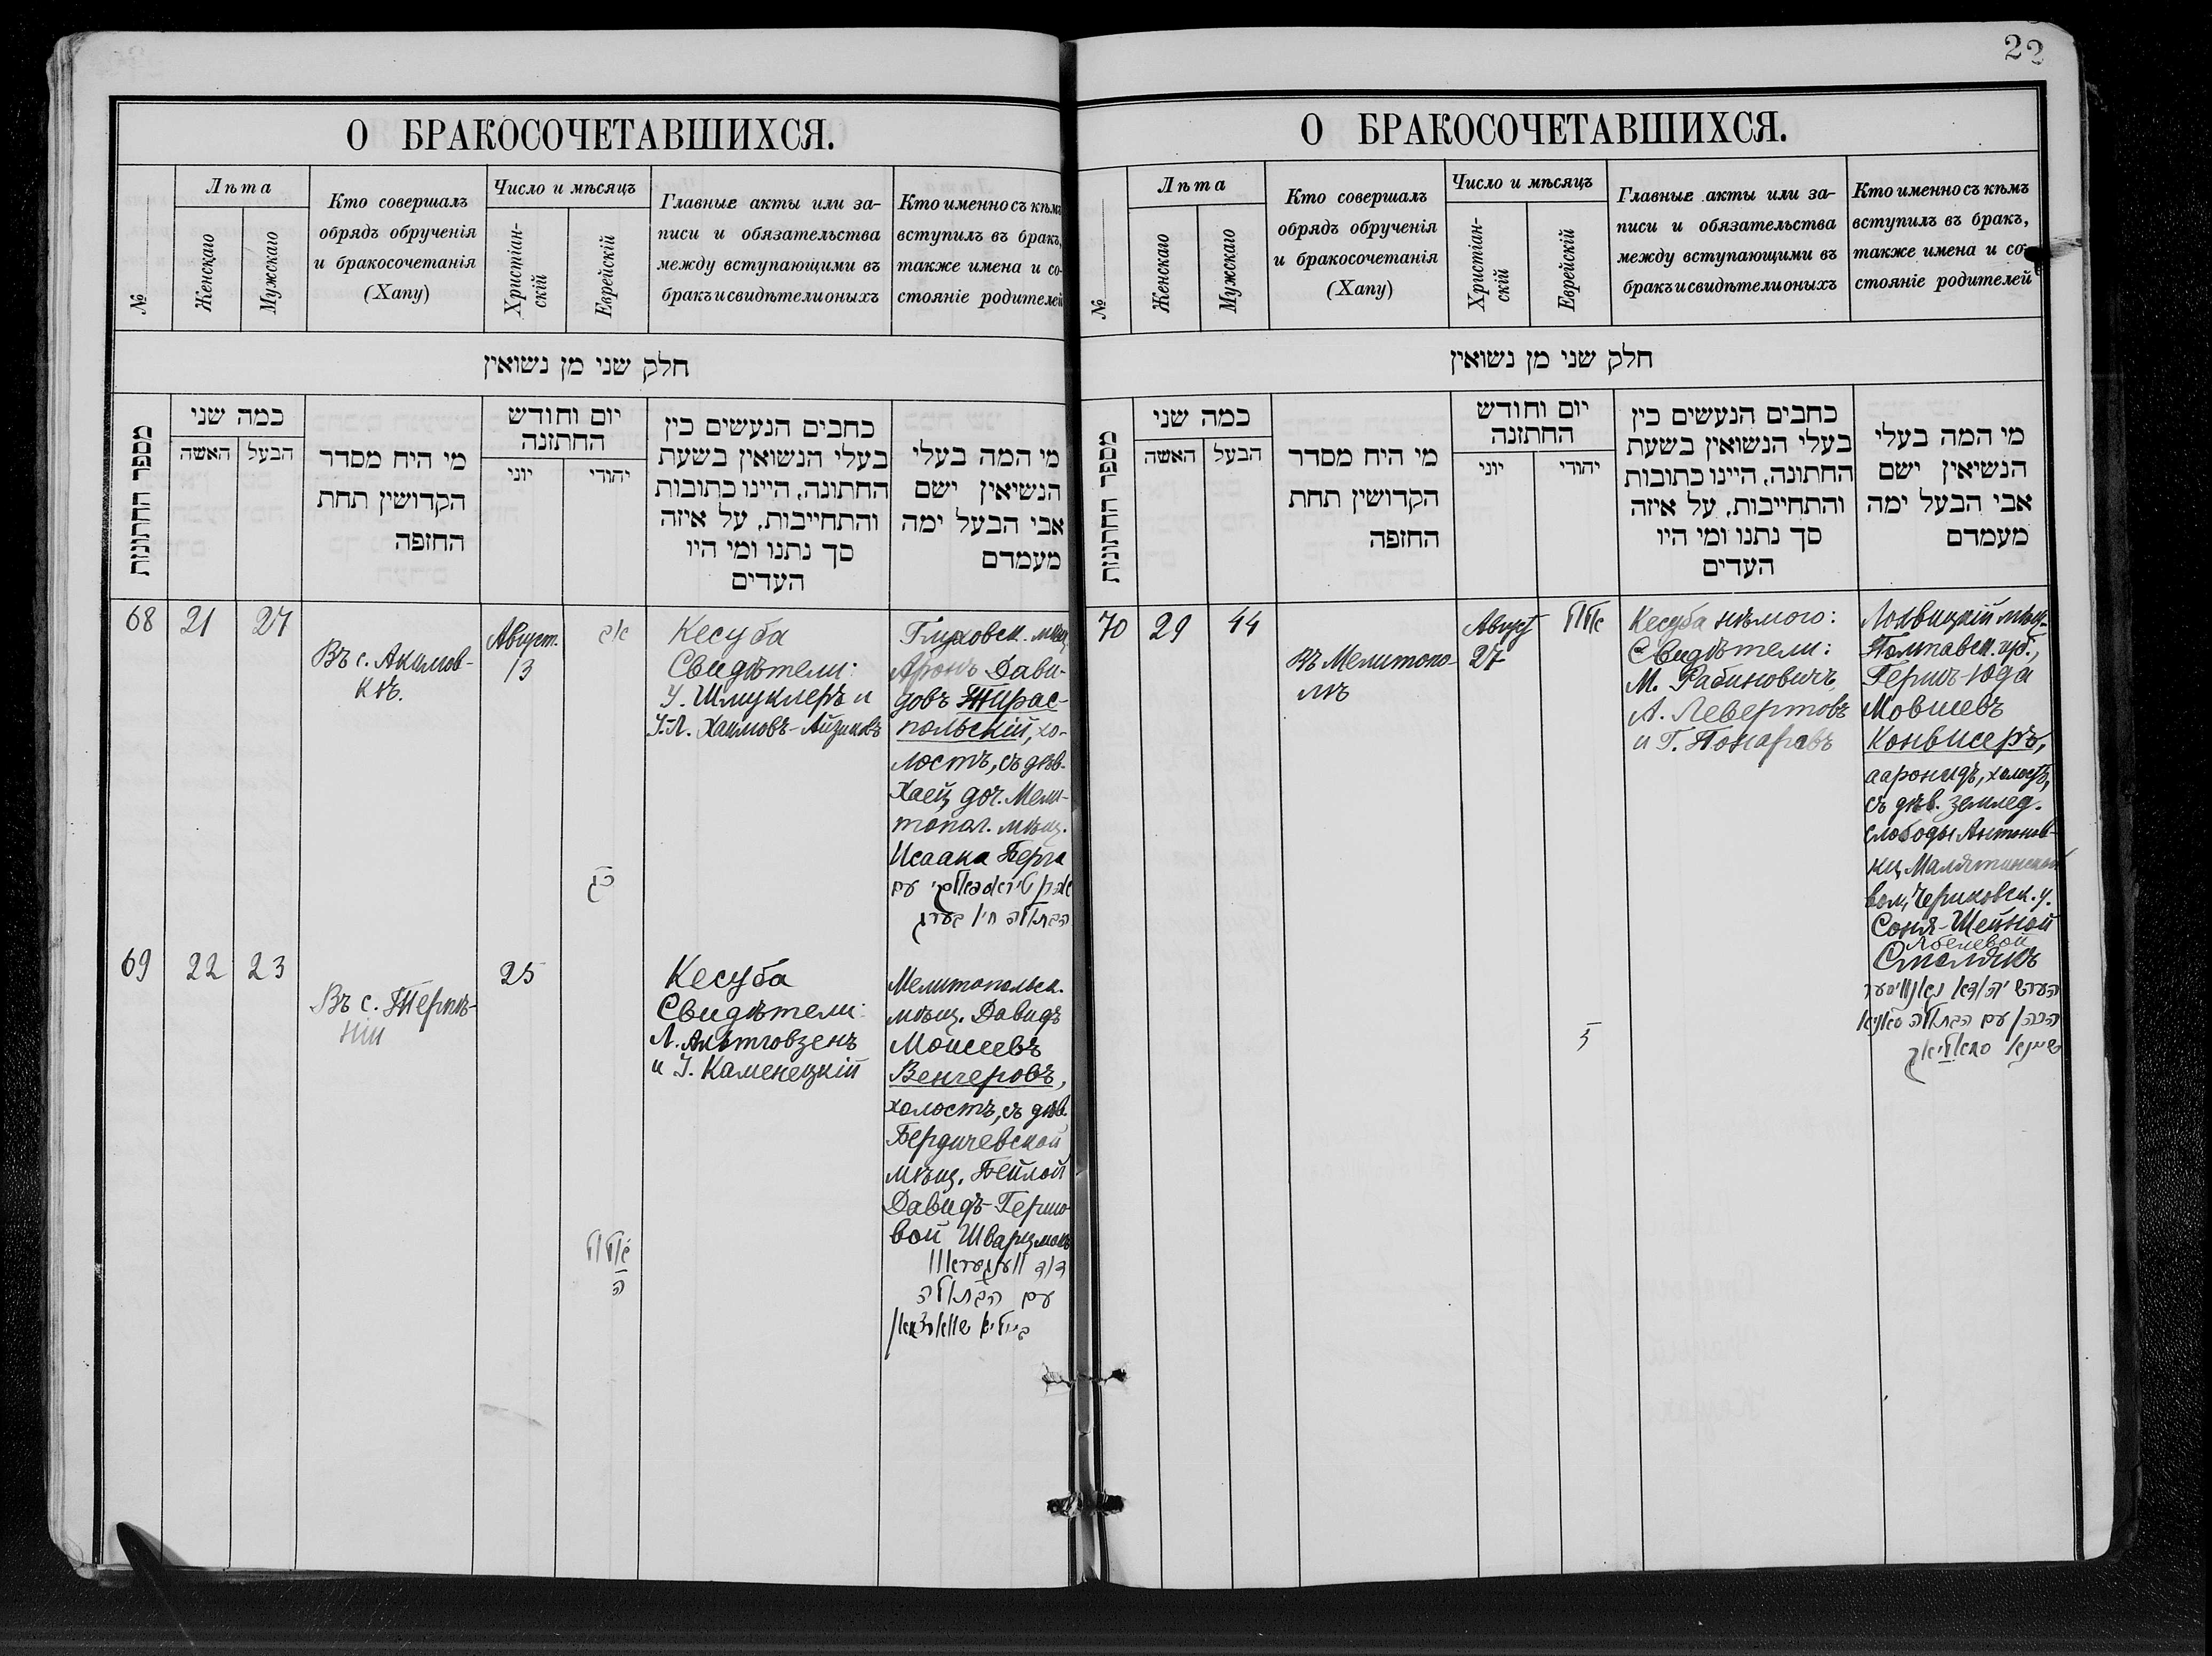 О БРАКОСОЧЕТАВШИХСЯ.
№
Лѣта
Женскаго
Мужскаго
Кто совершалъ
обрядъ обрученія
и бракосочетанія
(Хапу)
Число и мѣсяцъ
Христіан-
скій
Еврейскій
Главные акты или за-
писи и обязательства
между вступающими въ
бракъ и свидѣтели оныхъ
Кто именно съ кѣмъ
вступилъ въ бракъ,
также имена и со-
стояніе родителей
חלק שני מן נשואין
מספר החתונות
כמה שני
האשה
הבעל
מי היח מסדר
הקדושין תחת
החזפה
יום וחודש
החתזנה
יוני
יהודי
כחבים הנעשים כין
בעלי הנשואין בשעת
החתונה, היינו כתובות
והתחייבות, על איזה
סך נתנו ומי היו
העדים
מי המה בעלי
הנשיאין ישם
אבי הבעל ימה
מעמדם
68
21
27
Въ с. Акимов-
кѣ.
Август.
13
אב
כג
Кесуба
Свидѣтели:
У. Шмуклеръ и
І.-Л. Хаимовъ-Айзикъ
Глуховск. мѣщ.
Аронъ Дави-
довъ Тирас-
польскій, хо-
лостъ, съ дѣв.
Хаей, доч. Мели-
топол. мѣщ.
Исаака Берга
עם
הבתולה חי' בערג
69
22
23
Въ с. Терпѣ-
ніи
25
אלול
ה
Кесуба
Свидѣтели:
и І. Каменецкій
Мелитопольск.
мѣщ. Давидъ
Моисеевъ
Венгеровъ,
холостъ, съ дѣв.
Бердичевской
мѣщ. Бейлой
Давидъ-Гершо-
вой Шварцманъ
דוד ווענגעראוו
עם הבתולה
ביילא שווארצמאן
22
О БРАКОСОЧЕТАВШИХСЯ.
№
Лѣта
Женскаго
Мужскаго
Кто совершалъ
обрядъ обрученія
и бракосочетанія
(Хапу)
Число и мѣсяцъ
Христіан-
скій
Еврейскій
Главные акты или за-
писи и обязательства
между вступающими въ
бракъ и свидѣтели оныхъ
Кто именно съ кѣмъ
вступилъ въ бракъ,
также имена и со-
стояніе родителей
חלק שני מן נשואין
מספר החתונות
כמה שני
האשה
הבעל
מי היח מסדר
הקדושין תחת
החזפה
יום וחודש
החתזנה
יוני
יהודי
כחבים הנעשים כין
בעלי הנשואין בשעת
החתונה, היינו כתובות
והתחייבות, על איזה
סך נתנו ומי היו
העדים
מי המה בעלי
הנשיאין ישם
אבי הבעל ימה
מעמדם
70
29
44
Въ Мелитопо-
лѣ
Август
27
אלול
ז
Кесуба нѣмого:
Свидѣтели:
М. Рабиновичъ,
А. Левертовъ
и Г. Понаровъ
Лохвицкій мѣщ.
Полтавск. губ.,
Гершъ-Юда
Мовшевъ
Конвисеръ,
ааронидъ, холостъ,
съ дѣв. землед.
слободы Антонов-
ки, Малятинской
вол., Чериковск. у.
Соня-Шейной
Абелевой
Столякъ
הערש יודא קאנוויסער
הכהן עם הבתולה סאניא
שיינא סטאליאק